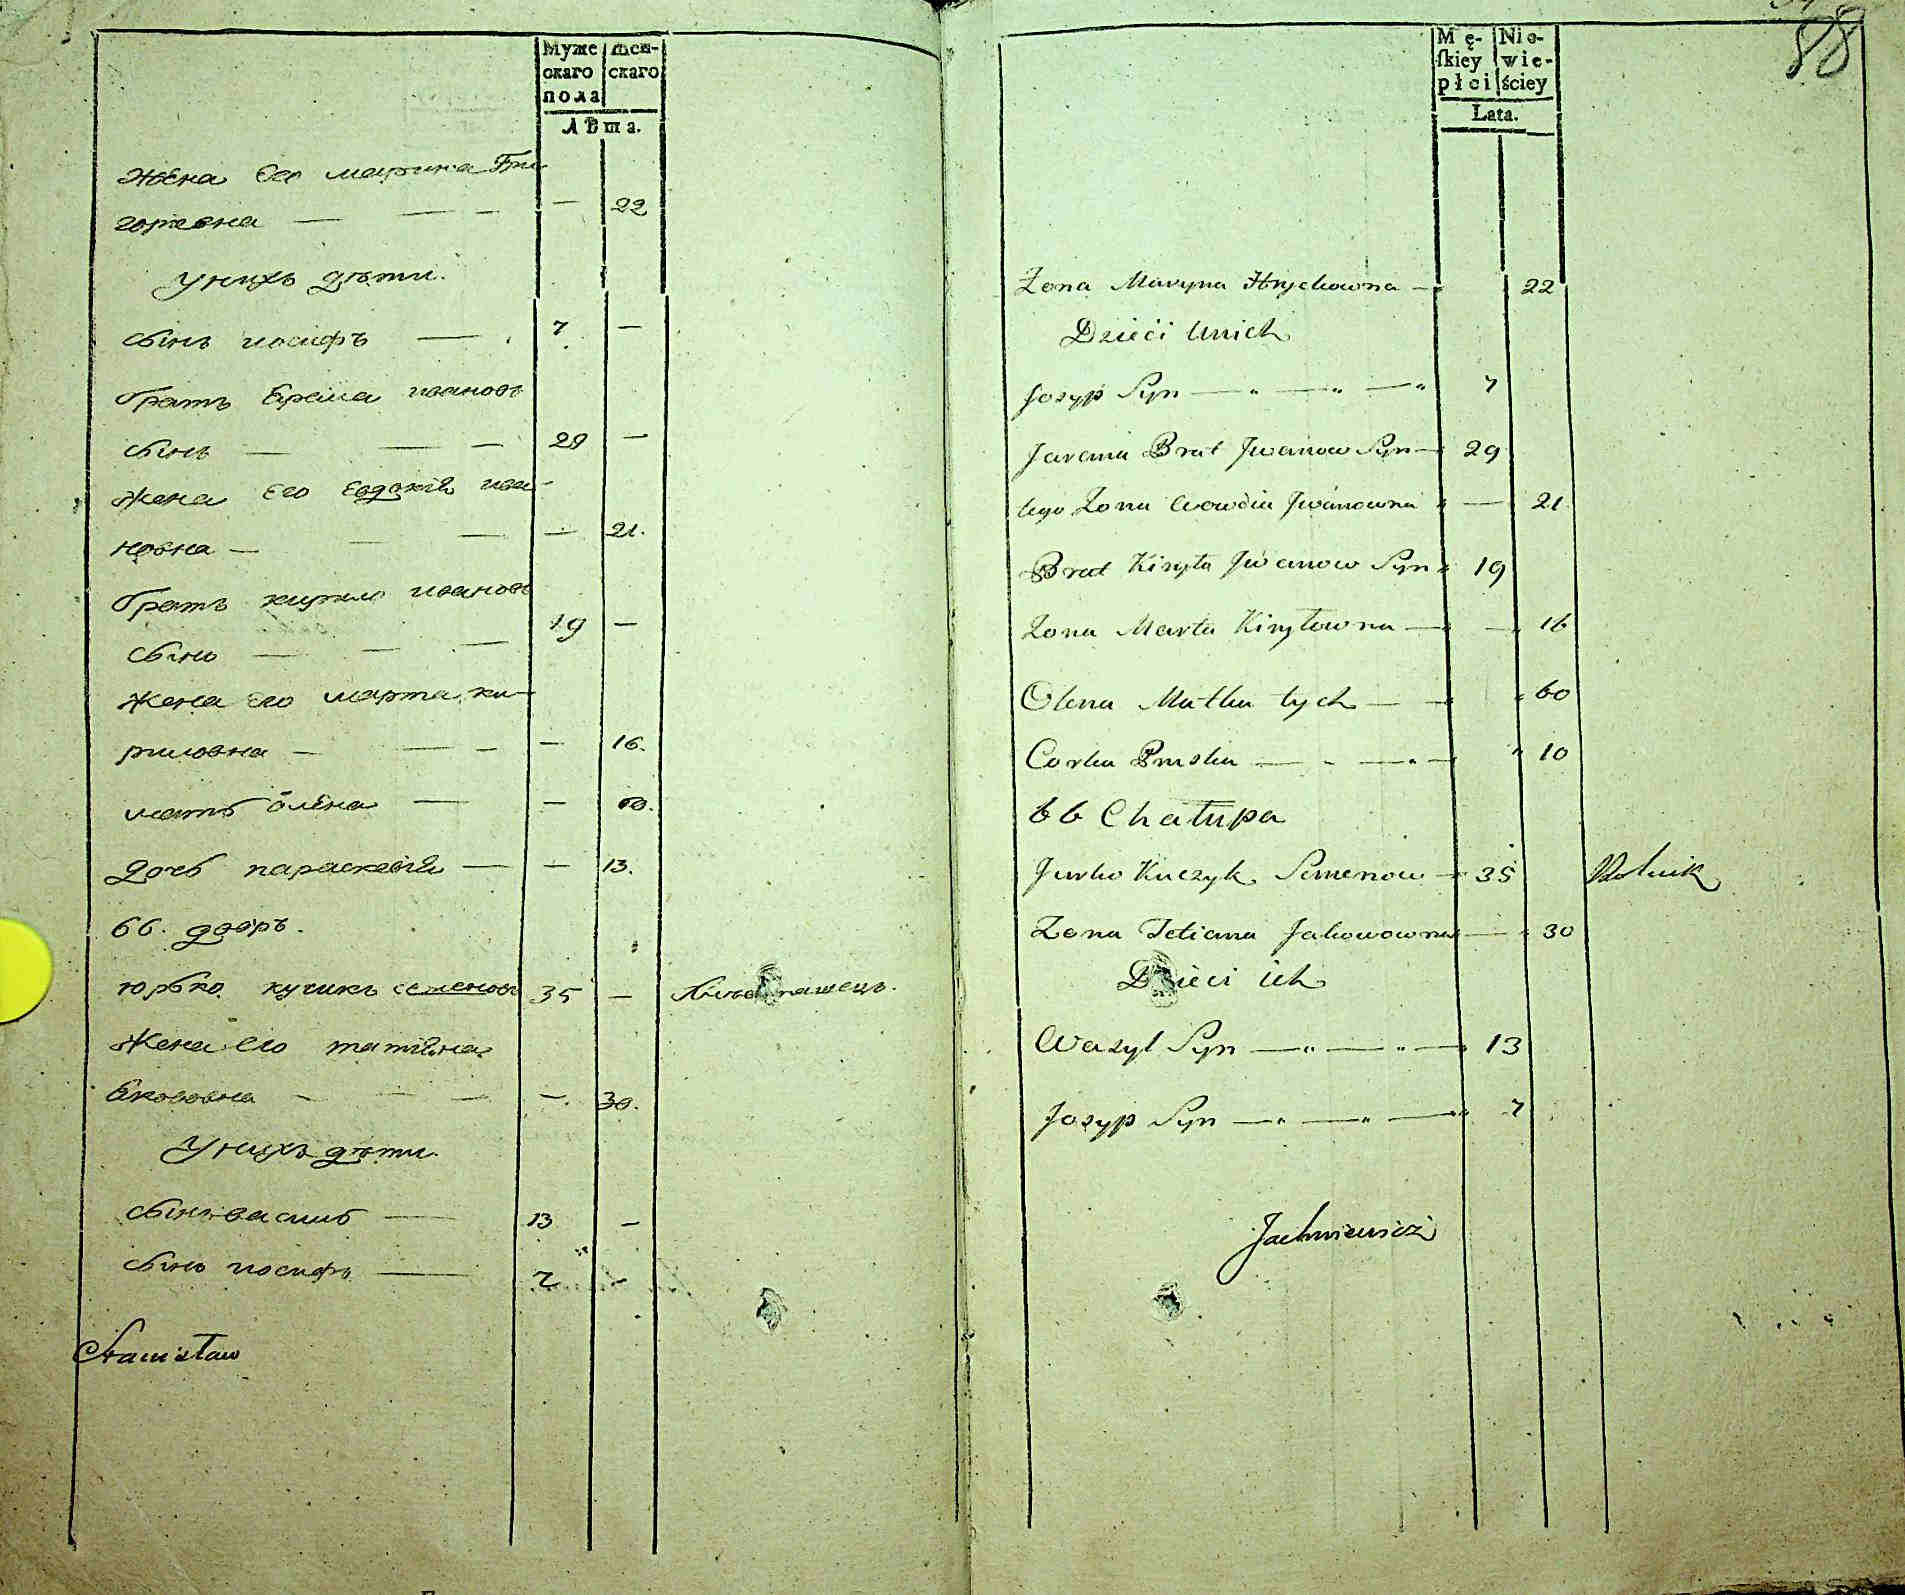 Муже
скаго
пола
Жен-
скаго
Лѣта.
Жена Его марина Гри
горовна — — — — 22
Унихъ дѣти.
сынъ иосифъ — 7 —
братъ Ярема ивановъ
сынъ — — — 29 —
Жена Его Евдокія ива-
новна — — — — 21.
братъ кирило ивановъ
сынъ — — — 19 —
Жена его марта ки-
риловна — — — — 16.
мать олена — — 60.
дочь параскевія — — 13.
66. дворъ.
юрько кучикъ семеновъ 35 — пашецъ.
Жена его татіяна
Якововна — — — — 30.
Унихъ дѣти.
сынъ василь — 13 —
сынъ иосифъ — 7 —
Stanisław
88
Mę-
ſkiey
płci
Nie-
wie-
ściey
Lata.
Żona Maryna Hryckowna — 22
Dzieci Unich
Josyp Syn — „ — „ — „ 7
Jarema Brat Jwanow Syn — 29
tego Żona Owdia Jwanowna „ — 21
Brat Kiryło Jwanow Syn „ 19
Żona Marta Kiryłowna — — „ 16
Olena Matka tych — — „ 60
Corka — „ — „ 10
66 Chałupa
Jurko Kuczyk Semenow — 35 Rolnik
Żona Tetiana Jakowowna — „ 30
Dzieci ich
Wasyl Syn — „ — „ — 13
Josyp Syn — „ — „ — „ 7
Jachniewicz